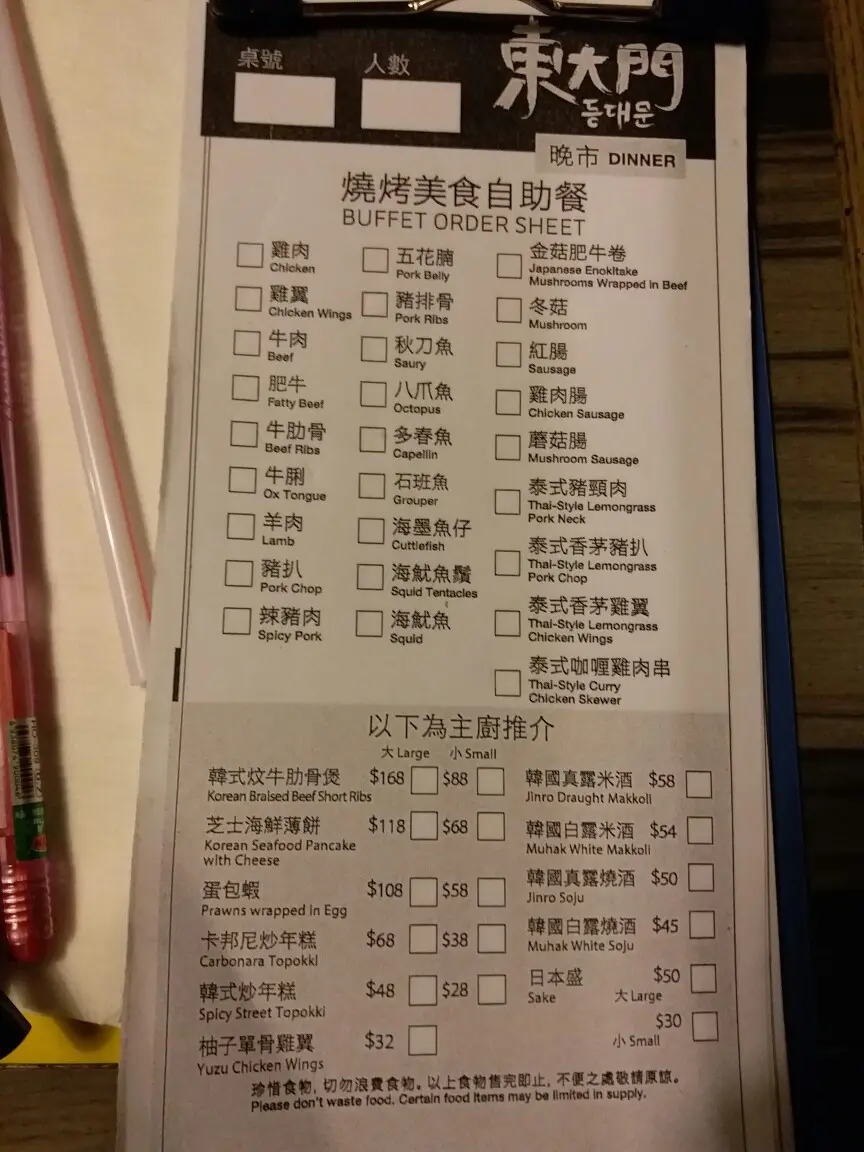 桌號
人數
東大門
등대문
晚市 DINNER
燒烤美食自助餐
BUFFET ORDER SHEET
雞肉
Chicken
雞翼
Chicken Wings
牛肉
Beef
肥牛
Fatty Beef
牛肋骨
Beef Ribs
牛脷
Ox Tongue
羊肉
Lamb
豬扒
Pork Chop
辣豬肉
Spicy Pork
五花腩
Pork Belly
豬排骨
Pork Ribs
秋刀魚
Saury
八爪魚
Octopus
多春魚
Capellin
石班魚
Grouper
海墨魚仔
Cuttlefish
海魷魚鬚
Squid Tentacles
海魷魚
Squid
金菇肥牛卷
Japanese Enokitake
Mushrooms Wrapped in Beef
冬菇
Mushroom
紅腸
Sausage
雞肉腸
Chicken Sausage
蘑菇腸
Mushroom Sausage
泰式豬頸肉
Thai-Style Lemongrass
Pork Neck
泰式香茅豬扒
Thai-Style Lemongrass
Pork Chop
泰式香茅雞翼
Thai-Style Lemongrass
Chicken Wings
泰式咖喱雞肉串
Thai-Style Curry
Chicken Skewer
以下為主廚推介
大 Large 小 Small
韓式炆牛肋骨煲 $168 $88
Korean Braised Beef Short Ribs
芝士海鮮薄餅 $118 $68
Korean Seafood Pancake
with Cheese
蛋包蝦 $108 $58
Prawns wrapped in Egg
卡邦尼炒年糕 $68 $38
Carbonara Topokki
韓式炒年糕 $48 $28
Spicy Street Topokki
柚子單骨雞翼 $32
Yuzu Chicken Wings
韓國真露米酒 $58
Jinro Draught Makkoli
韓國白露米酒 $54
Muhak White Makkoli
韓國真露燒酒 $50
Jinro Soju
韓國白露燒酒 $45
Muhak White Soju
日本盛 $50
Sake 大 Large
$30
小 Small
珍惜食物, 切勿浪費食物。以上食物售完即止, 不便之處敬請原諒。
Please don't waste food. Certain food items may be limited in supply.